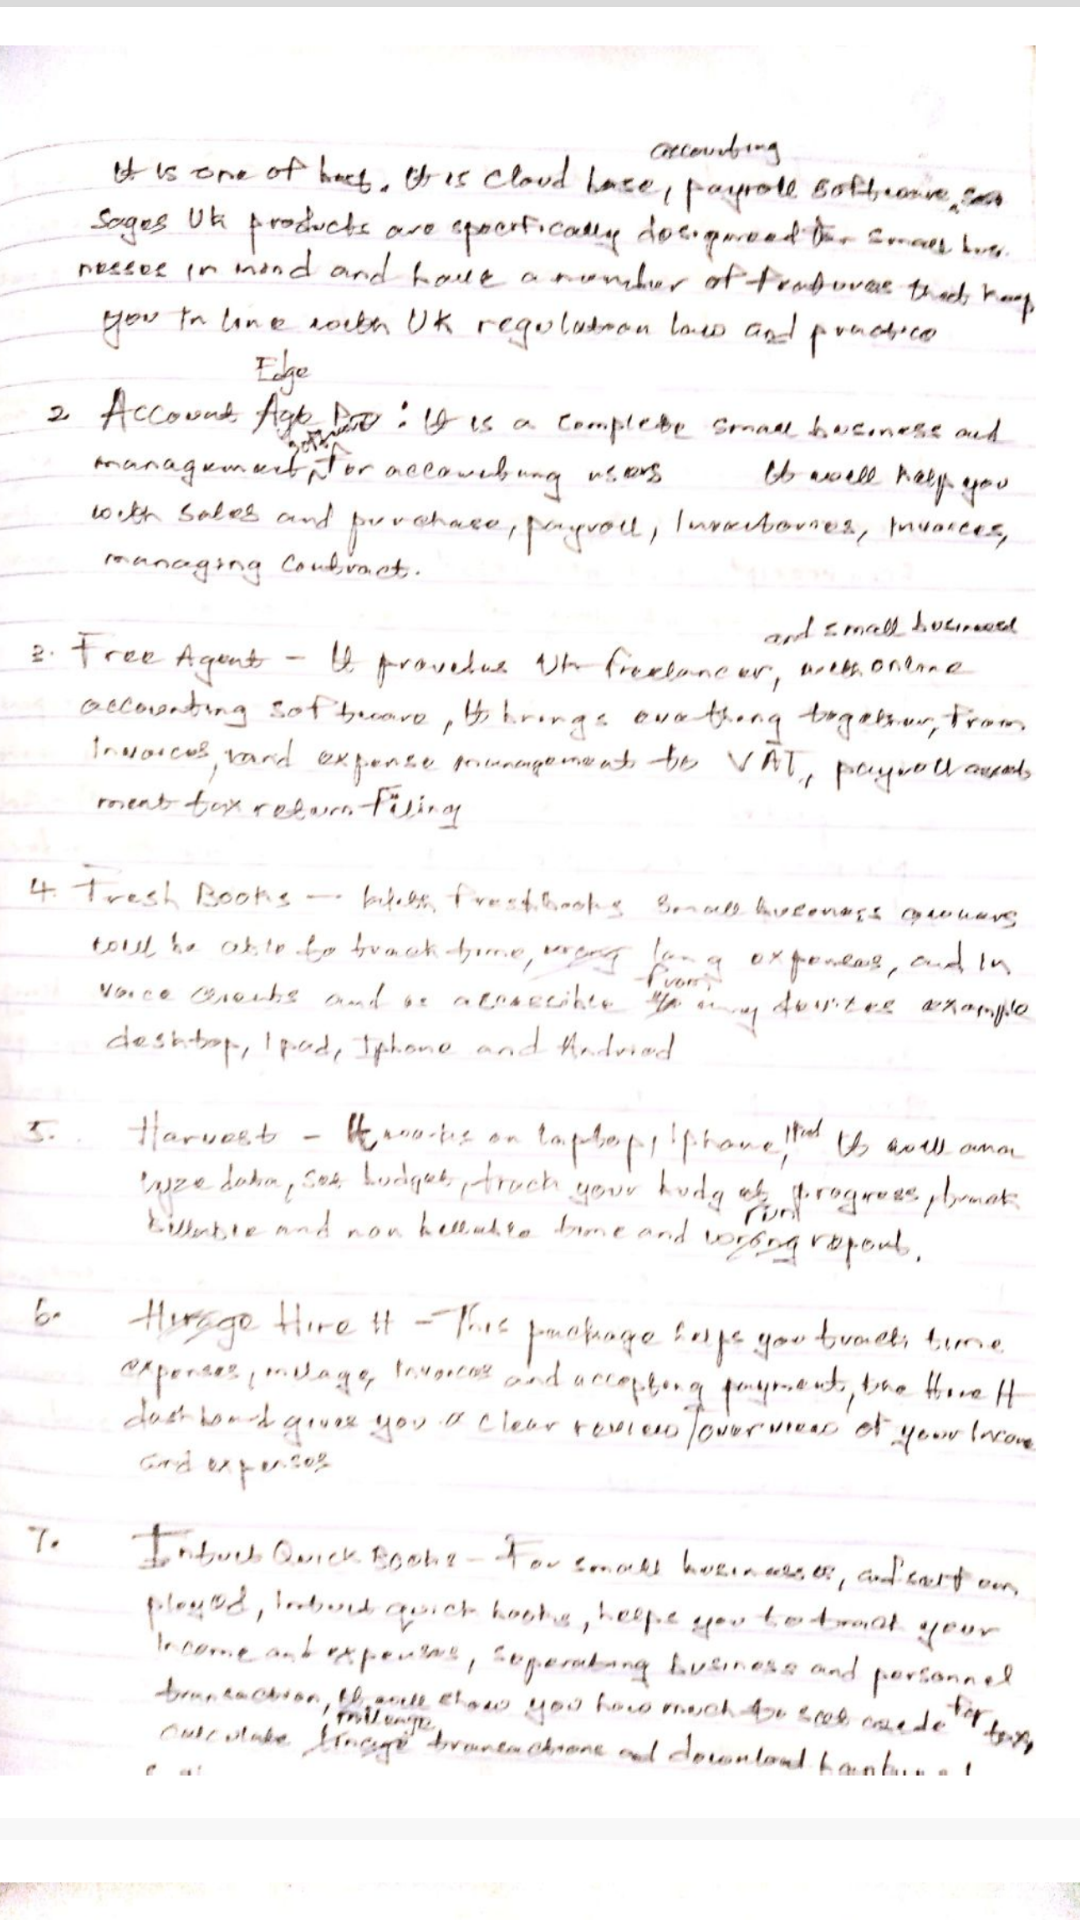 accounting
It is one of best. It is Cloud base, payroll software,
Sages UK products are specifically designed for small busi
nesses in mind and have a number of features that keep
you in line with UK regulation law and practice
Edge
2 Account : It is a complete small business and
software
management for accounting users It will help you
with sales and purchase, payroll, Inventories, Invoices,
managing Contract.
and small business
3. Free Agent - It provides UK freelancer, with online
accounting software, It brings everthing together, from
Invoices, and expense management to VAT, payroll
ment tax return Filing
4. Fresh Books - With freshbooks small business owners
will be able to track time, log expenses, and in
from
voice clients and is accessible any devices example
desktop, Ipad, Iphone and Andriod
5. Harvest - It works on laptop, Iphone, Ipad It will ana
lyze data, set budget, track your budget progress, track
run
billable and non billable time and report.
6. Hire H - This package helps you track time
expenses, milage, Invoices and accepting payment, the Hire H
dashboard gives you a clear review/overview of your Income
and expenses
7. Intuit Quick Books - For small businesses, and self em
ployed, Intuit quick books, helps you to track your
Income and expenses, seperating business and personnel
transaction, It will show you how much to set aside for tax,
mileage
calculate transactions and download